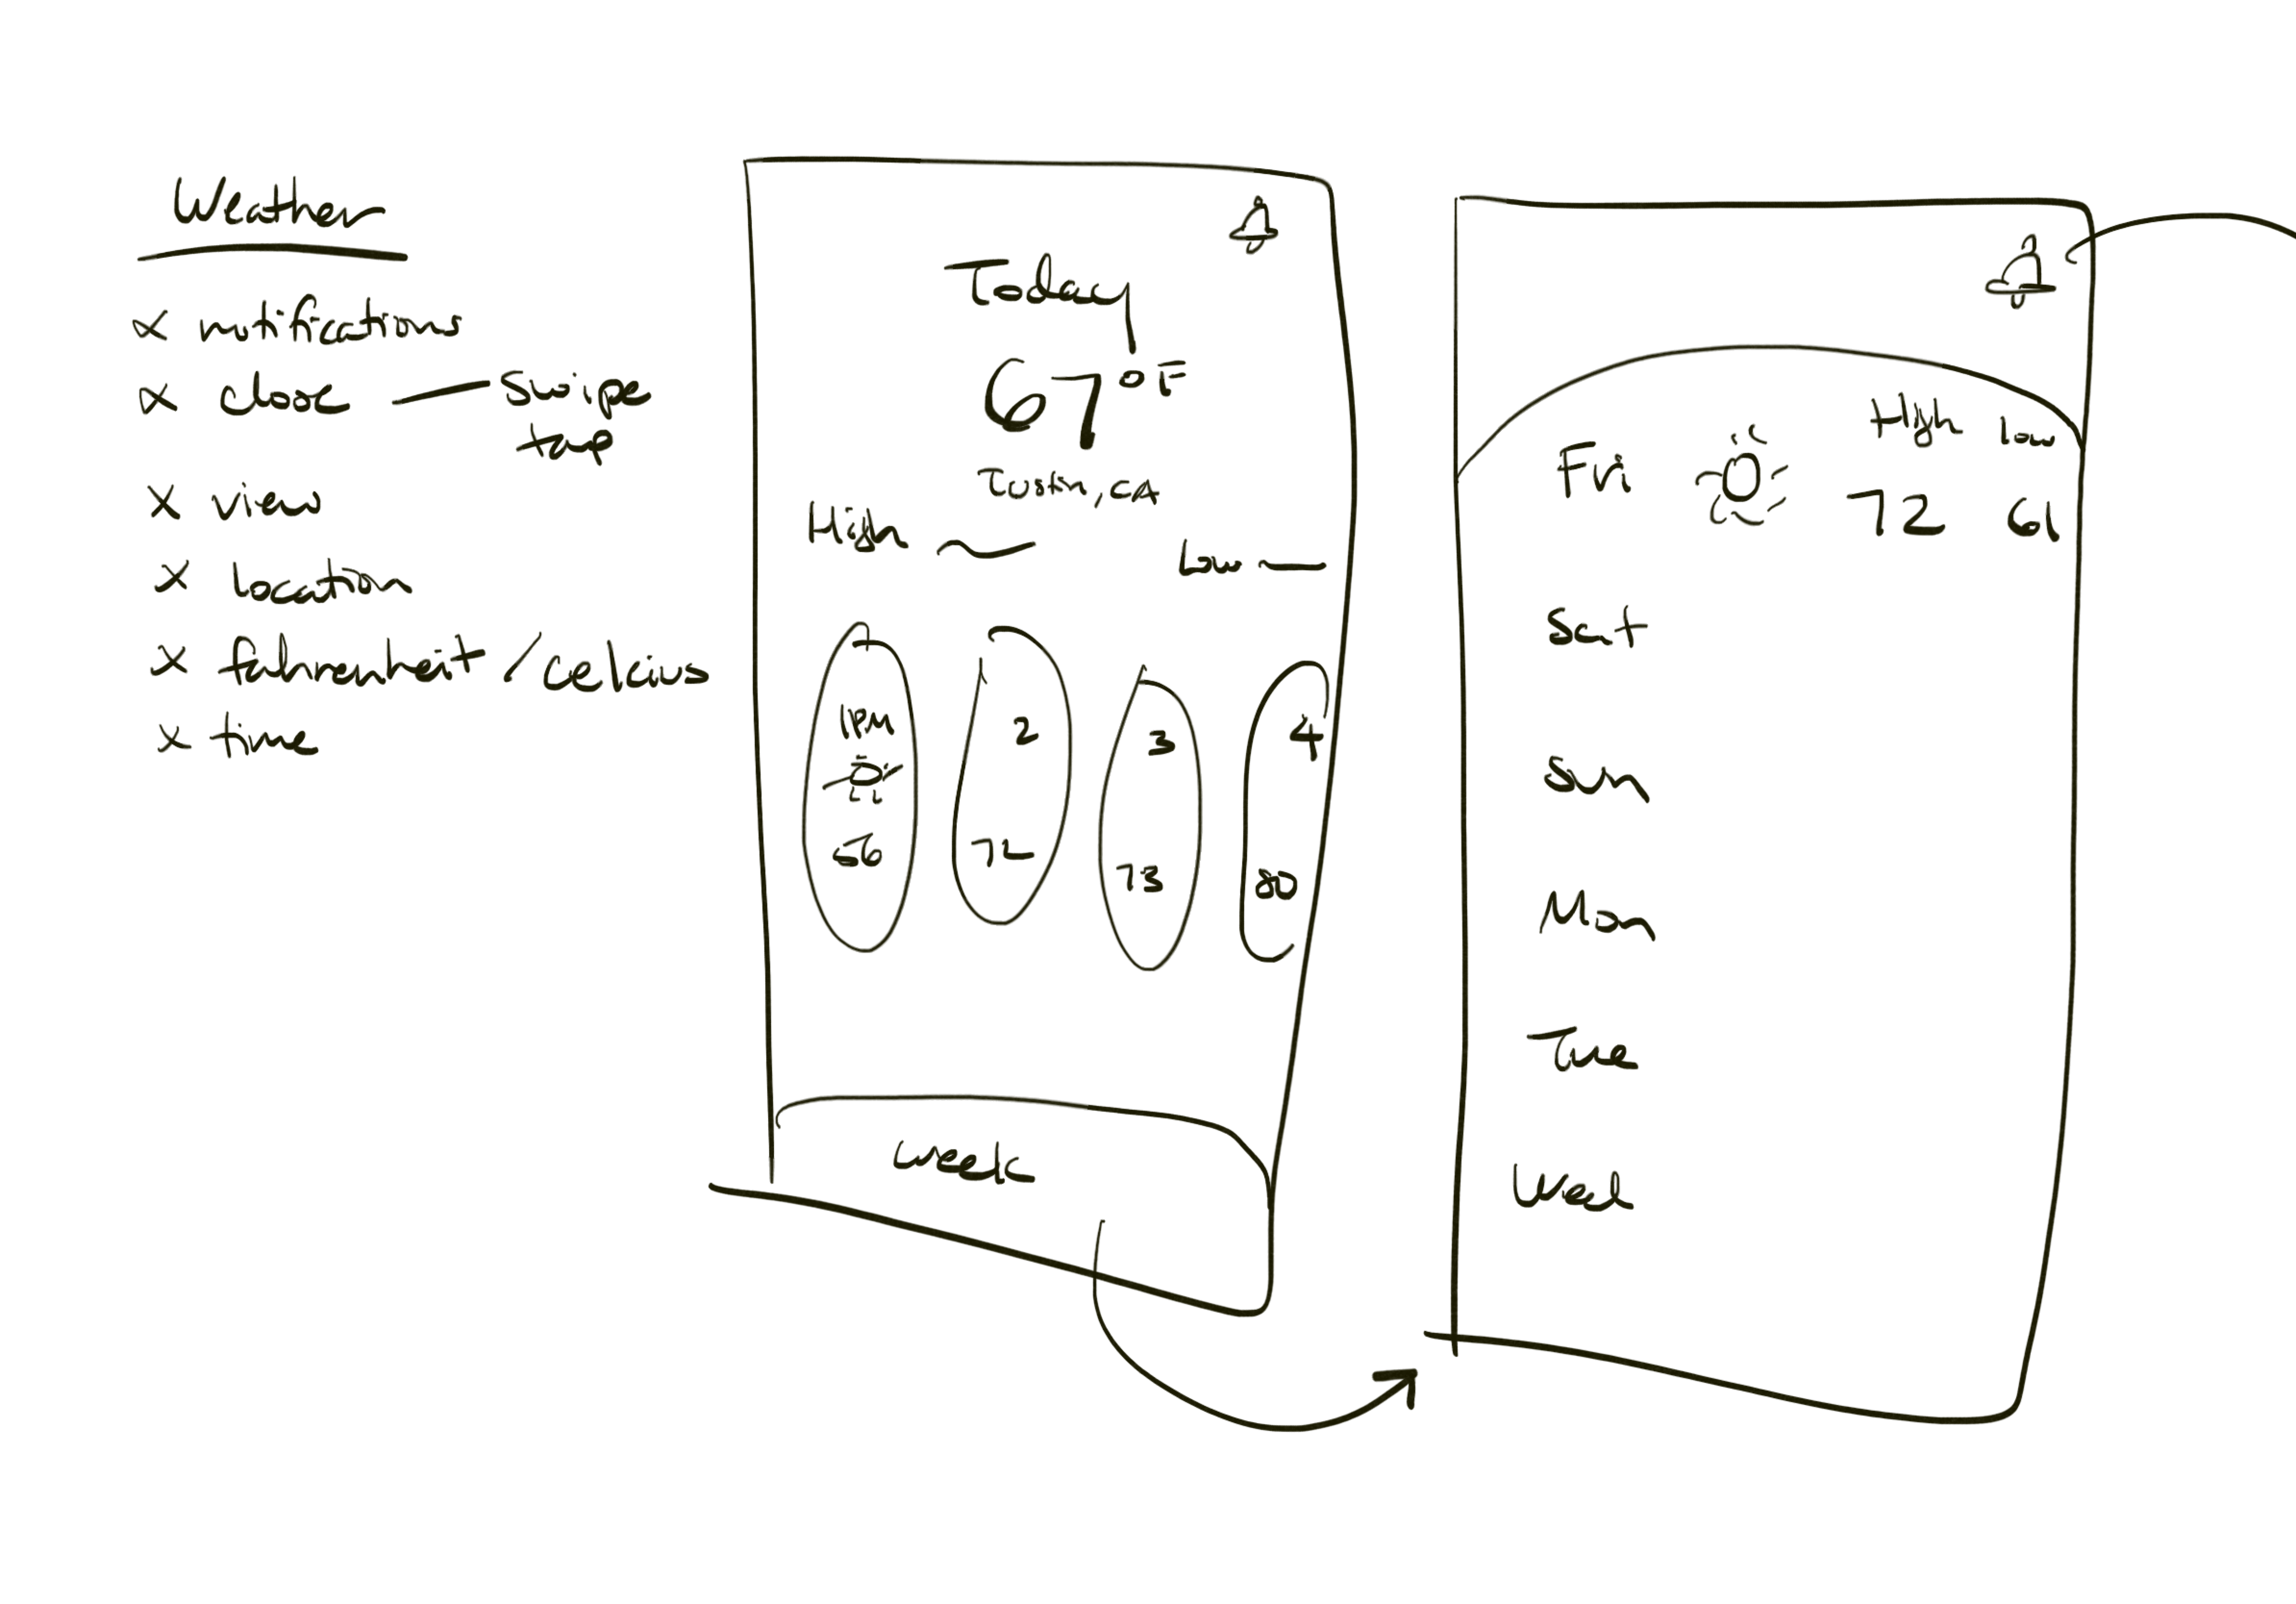 Weather
x notifications
x close — swipe
tap
x view
x location
x fahrenheit / celcius
x time
Today
67°F
Tustin, CA
High
Low
1PM
56
2
72
3
73
4
80
week
High low
Fri
72 61
Sat
Sun
Mon
Tue
Wed